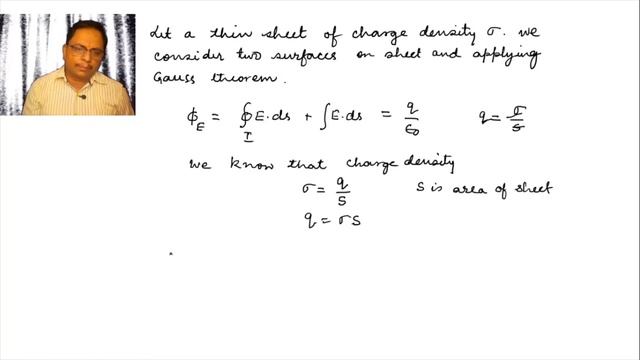 Let a thin sheet of charge density σ. we
consider two surfaces on sheet and applying
Gauss theorem.
ϕ_E = ∮_I E.ds + ∫E.ds = q/ε₀    q = σ/s
we know that charge density
σ = q/s    S is area of sheet
q = σs